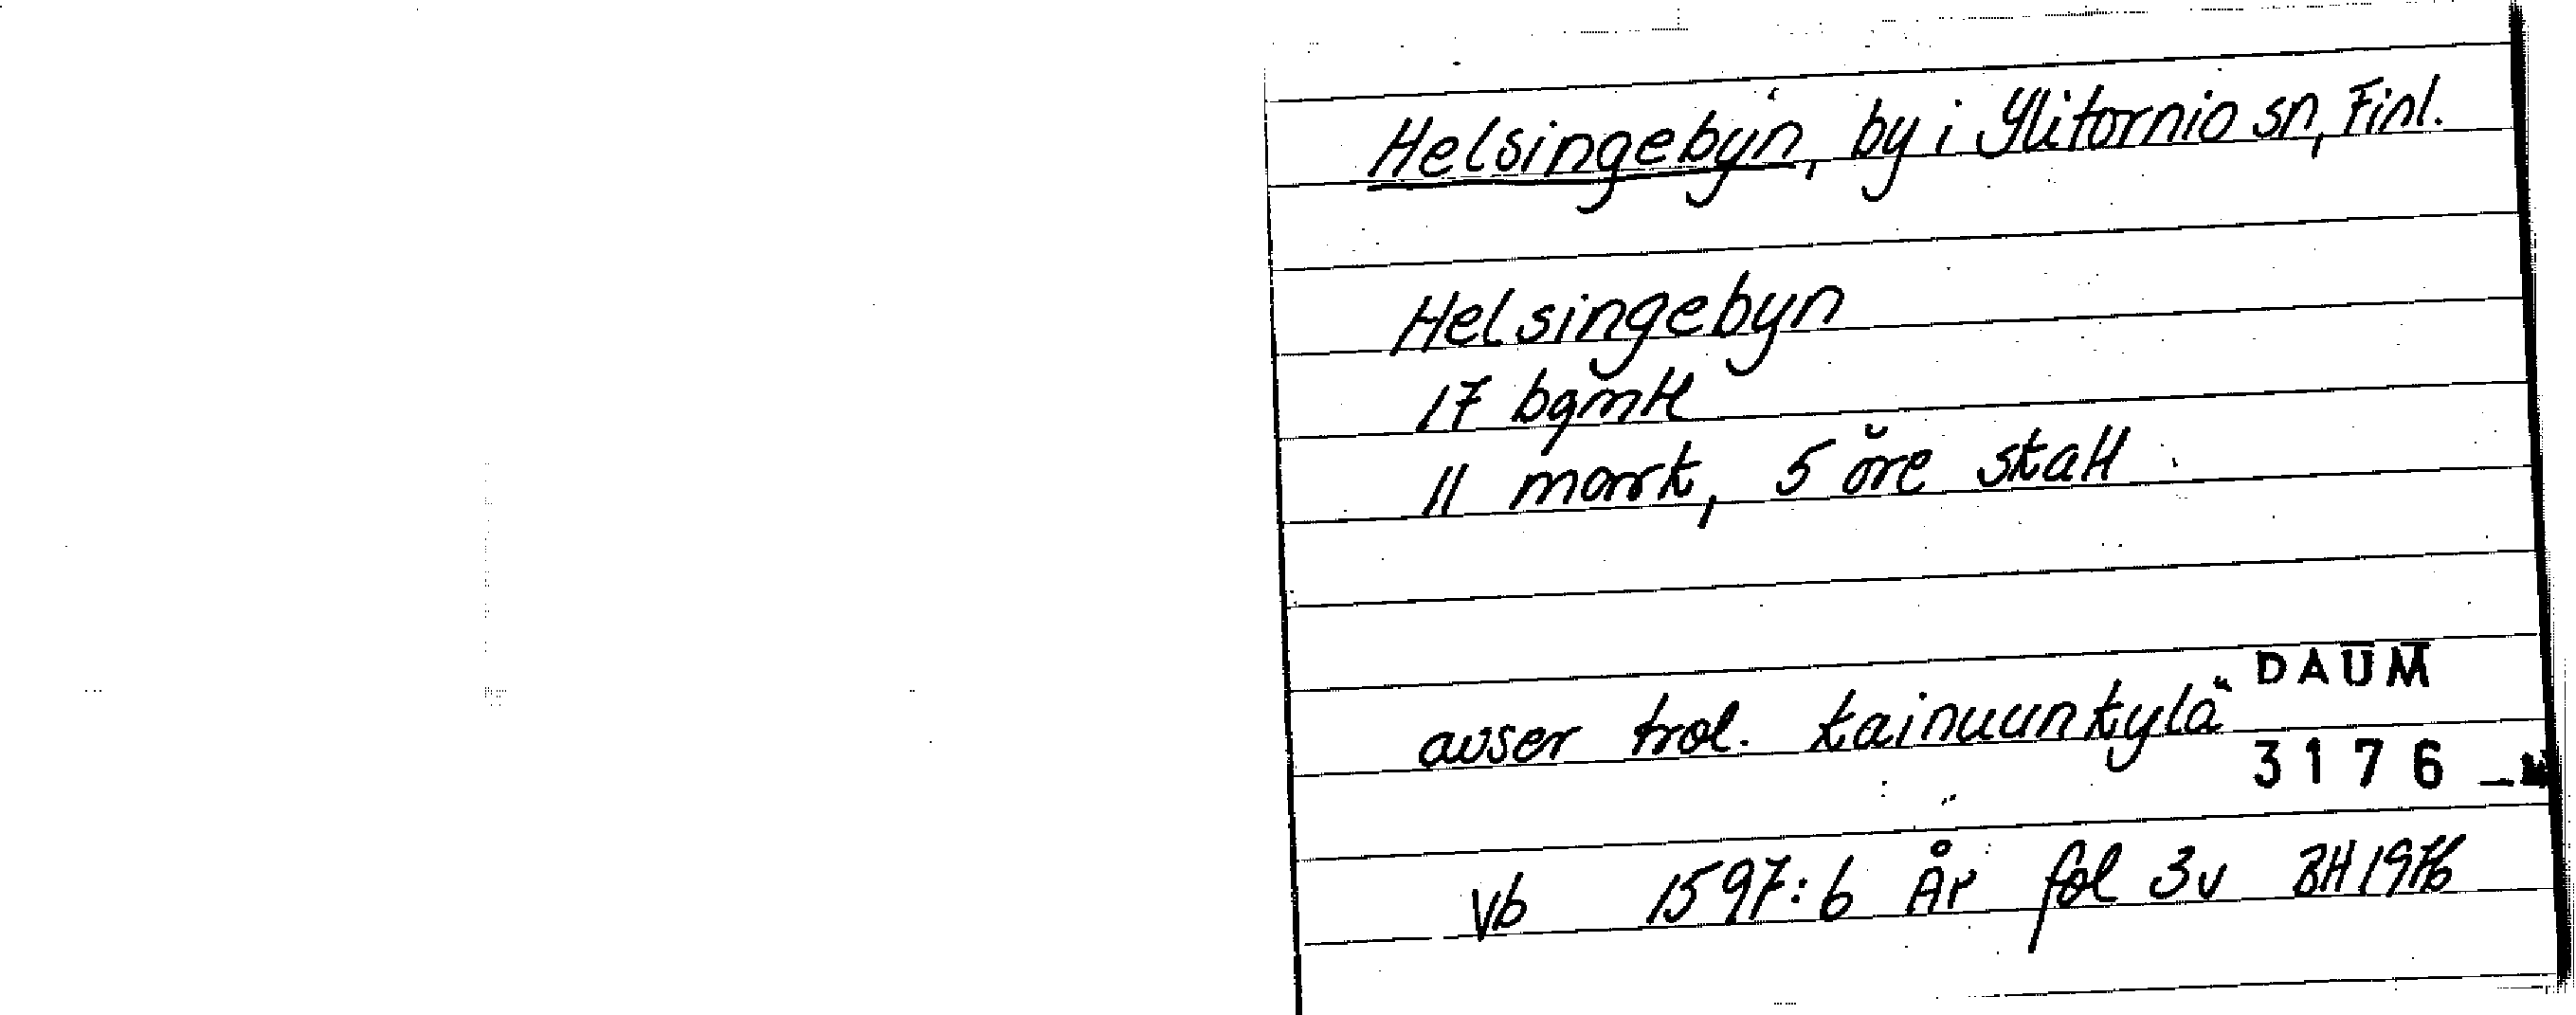 Helsingebyn, by i Ylitornio sn, Finl.
Helsingebyn
17 bgmH
11 mark, 5 öre skatt
DAUM
avser trol. kainuunkylä
3176
Vb 1597:6 År fol 3v BH 1976